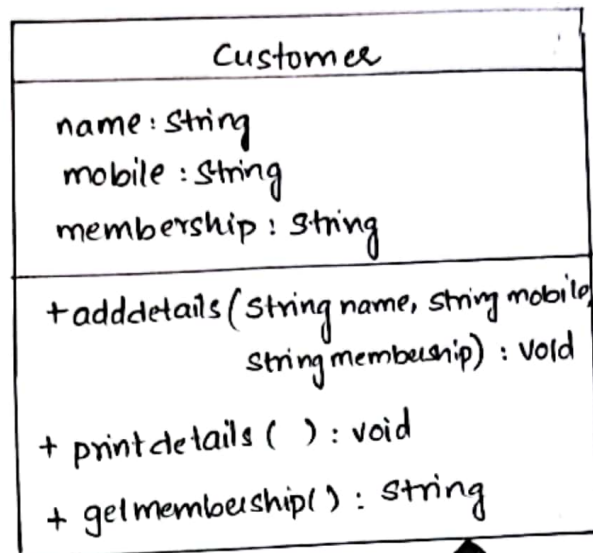 Customer
name : String
mobile : String
membership : String
+adddetails(String name, String mobile,
String membership) : void
+ printdetails ( ) : void
+ getmembership( ) : String